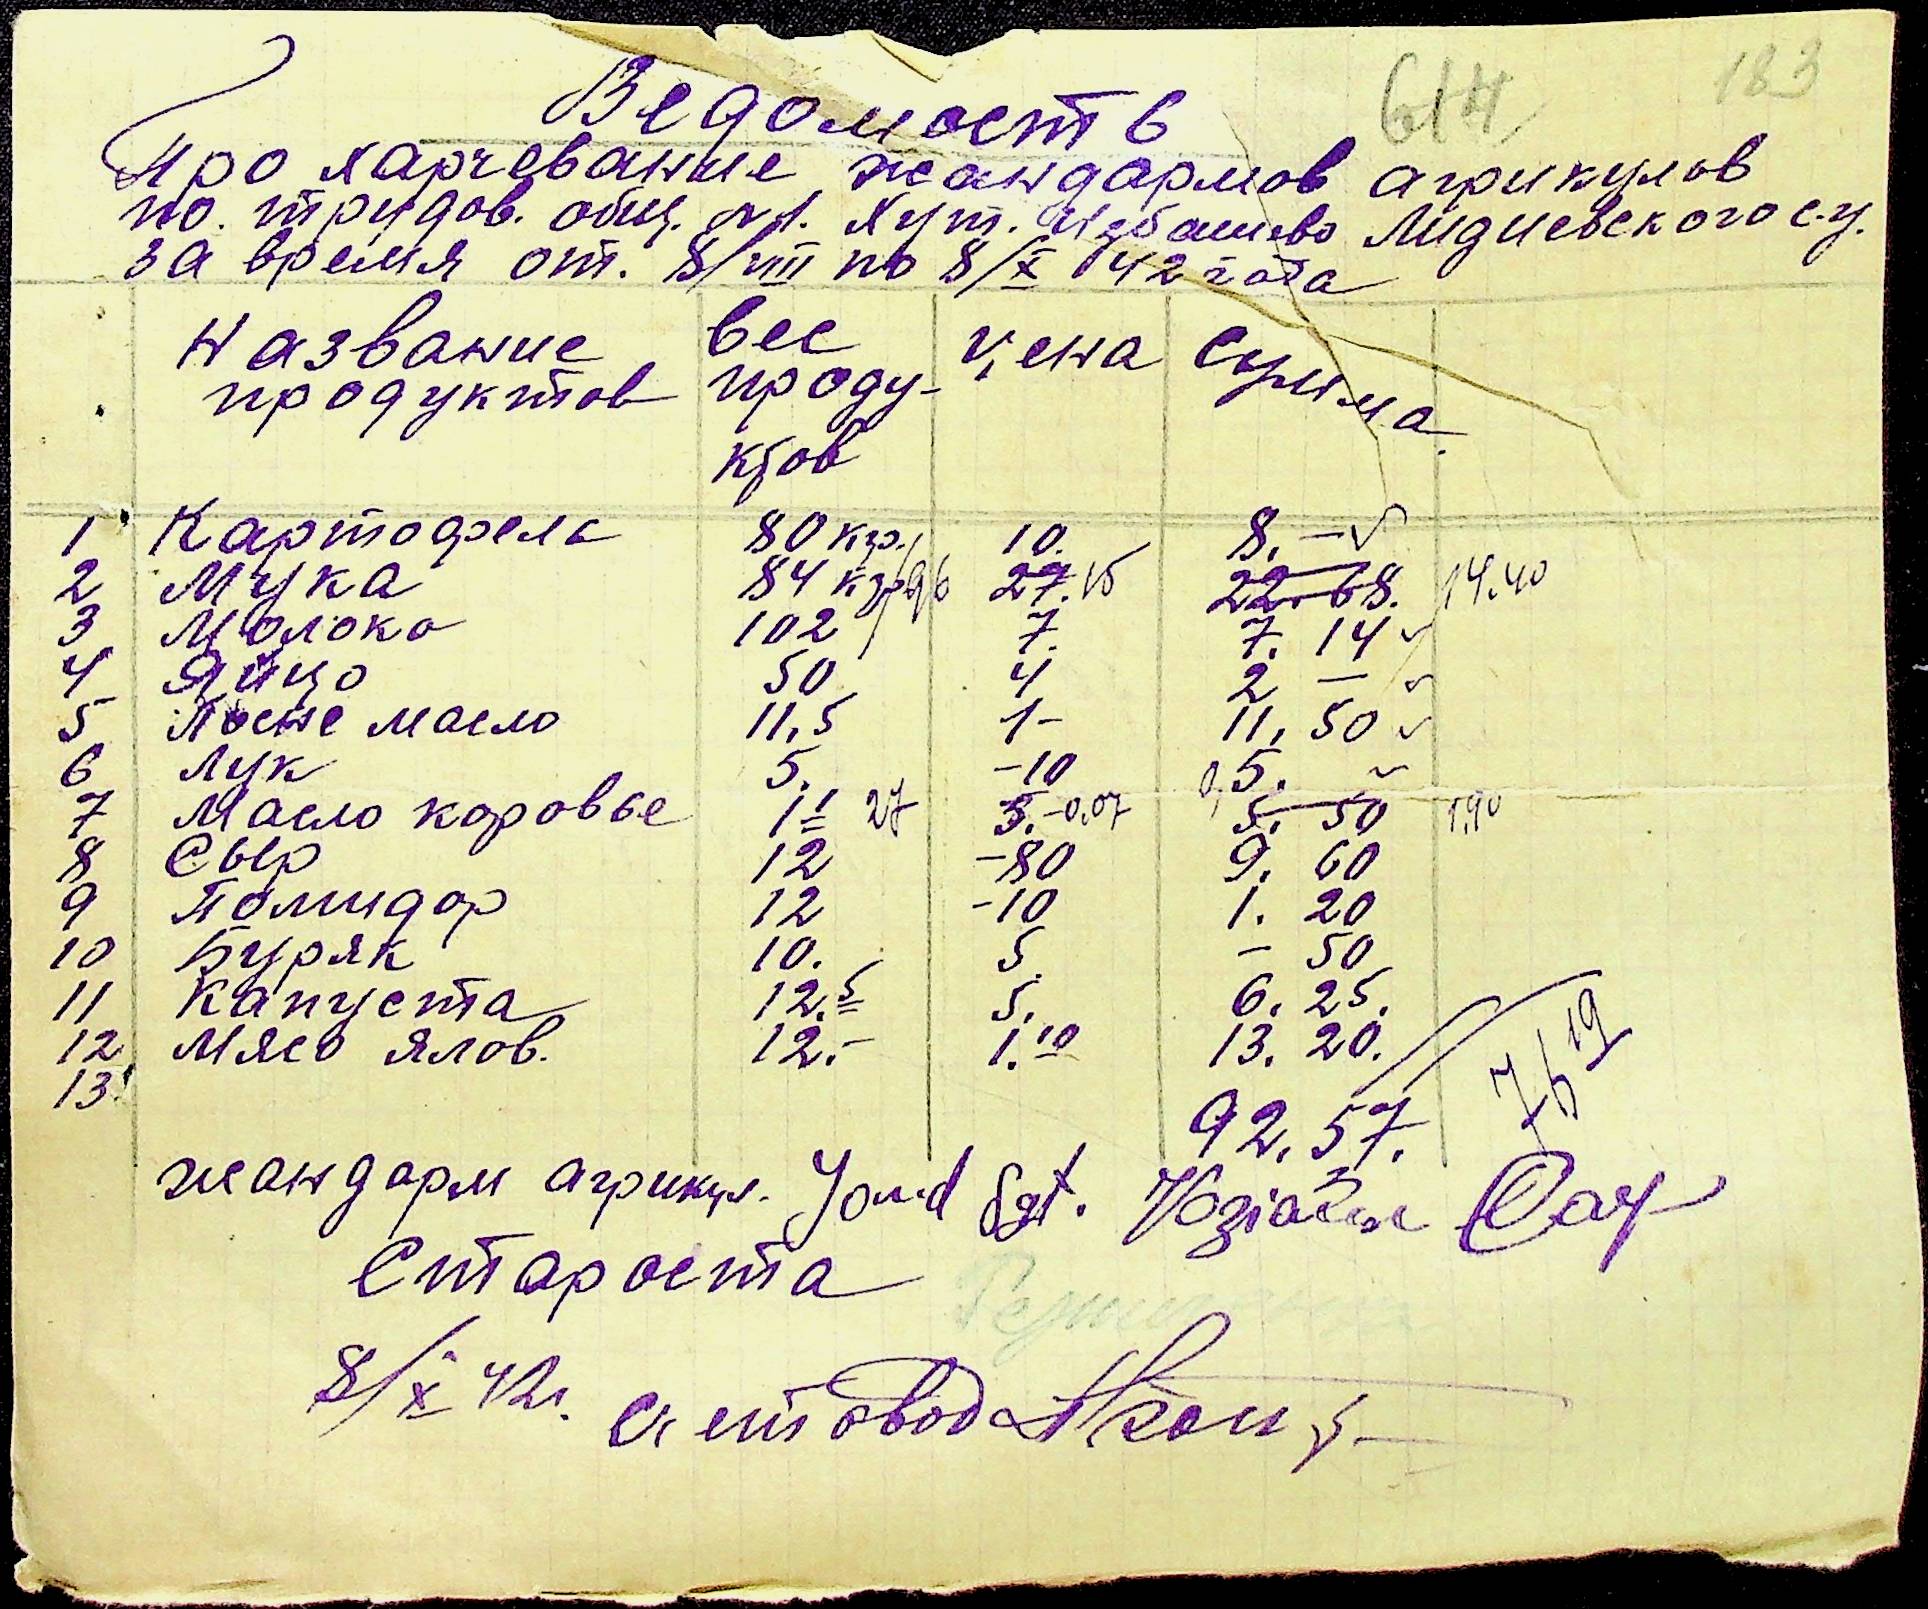 183
614
Ведомость
Про харчевание жандармов агрикулов
по. трудов. общ. №1. Хут. Ивашево Лидиевского с.у.
за время от. 8/VIII по 8/X 42 года
Название продуктов вес продуктов цена сумма
1 Картофель 80 кгр. 10. 8. –
2 Мука 84 кгр 96 27. 15 22. 68. 14.40
3 Молоко 102 7. 7. 14
4 Яйцо 50 4 2 –
5 Посне масло 11,5 1- 11, 50
6 Лук 5. -10 0,5.
7 Масло коровье 11 27 5.-0.07 5. 50 1,90
8 Сыр 12 -80 9. 60
9 Помидор 12 -10 1. 20
10 Буряк 10. 5. – 50
11 Капуста 12.5 5. 6. 25.
12 Мясо ялов. 12.- 1.10 13. 20.
13.
92. 57. 76 19
жандарм агрикул. Sgt.
Староста
8/X 42г. счетовод